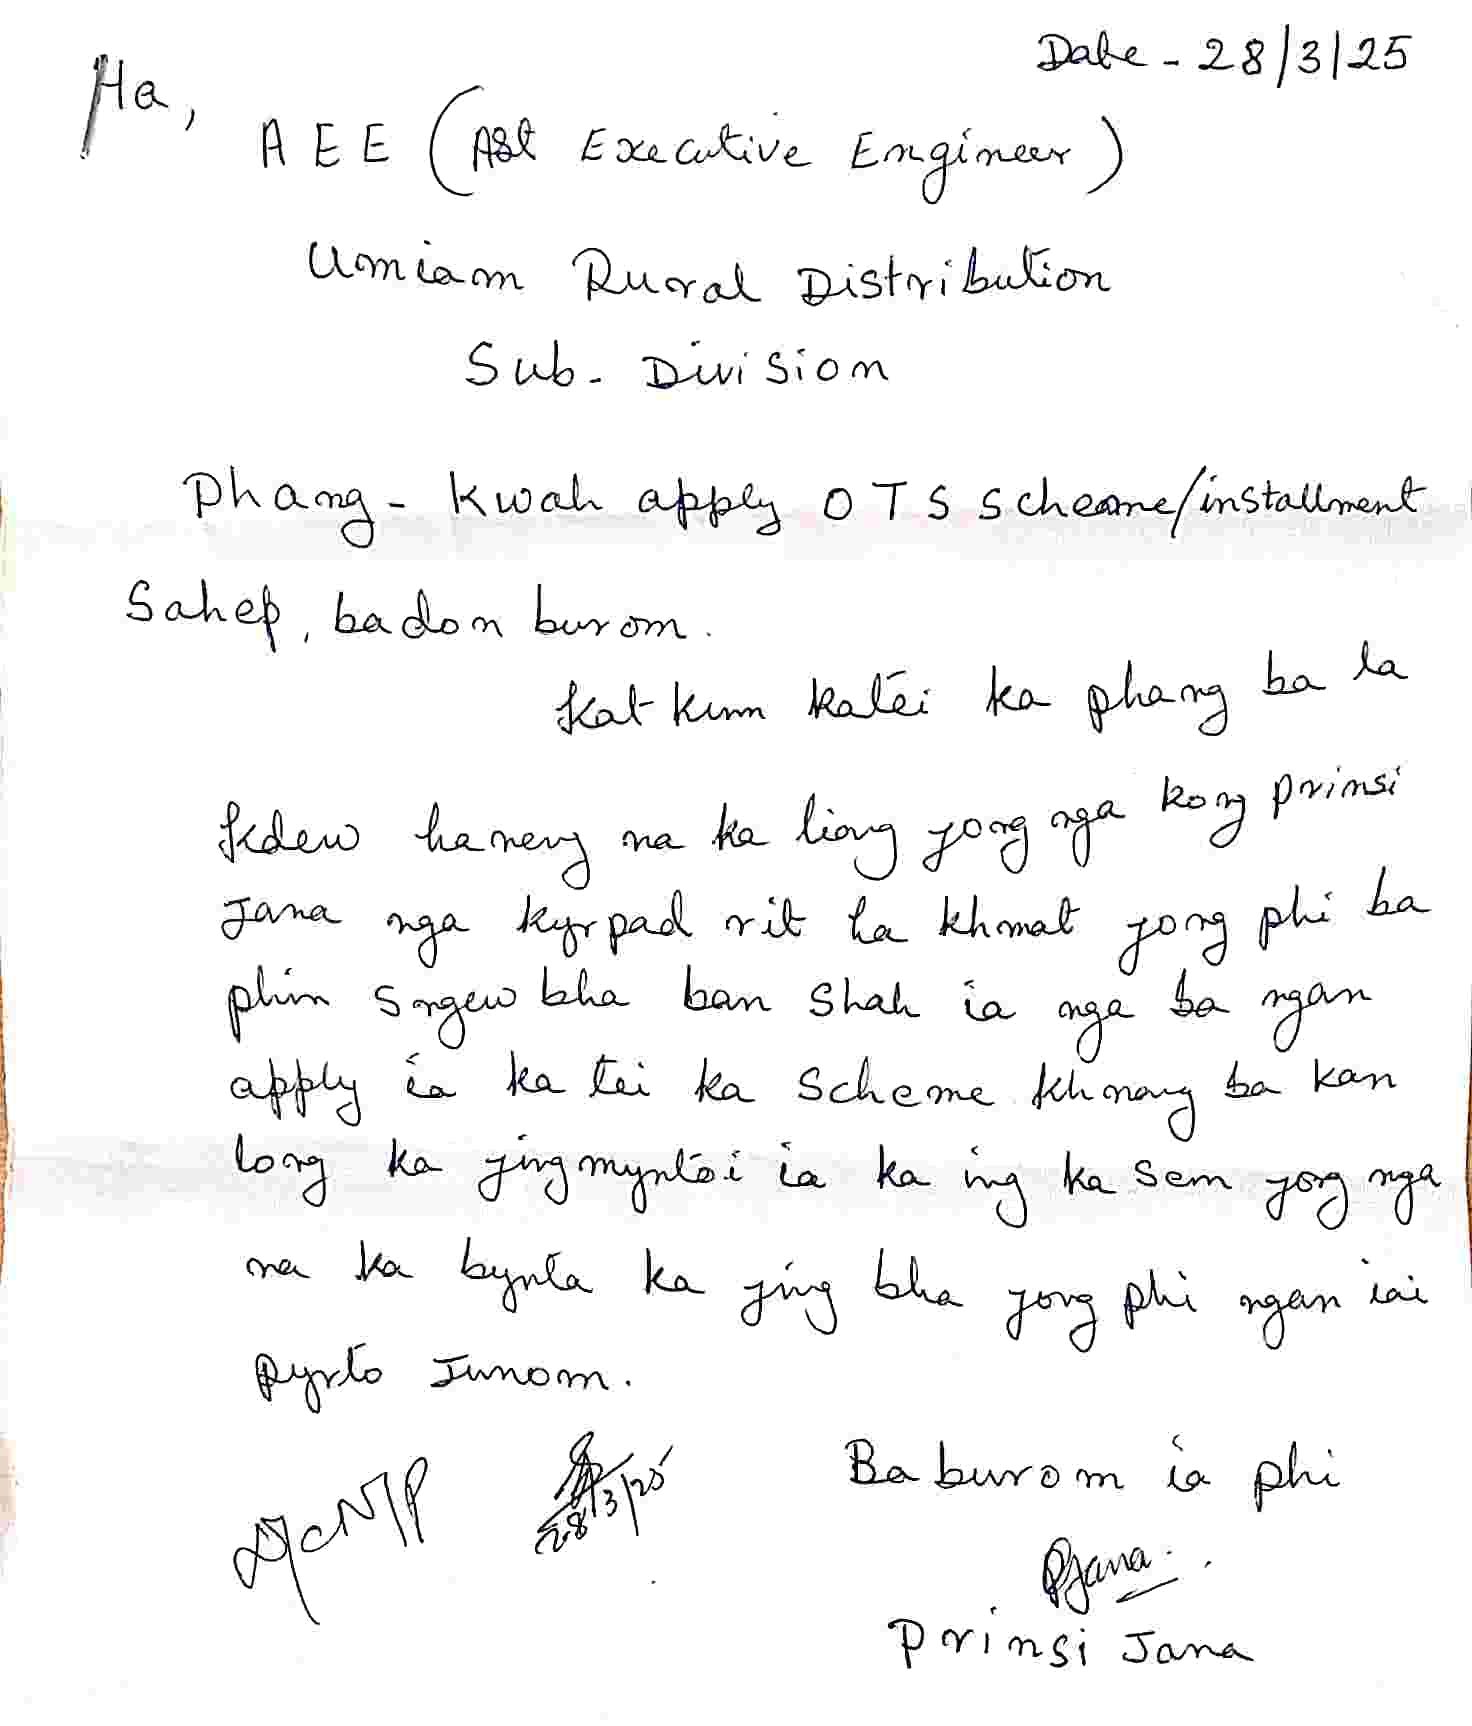 Date - 28/3/25
Ha,
AEE (Ast Executive Engineer)
Umiam Rural Distribution
Sub - Division
Phang - Kwah apply OTS Scheme/installment
Sahep, badon burom.
Kat kum katei ka phang ba la
Kdew haneng na ka liang jong nga kong Prinsi
Jana nga kyrpad rit ha khmat jong phi ba
phin Sngew bha ban Shah ia nga ba ngan
apply ia ka tei ka Scheme khnang ba kan
long ka jingmyntoi ia ka ing ka sem jong nga
na ka bynta ka jing bha jong phi ngan iai
pyrto Junom.
28/3/25
Ba burom ia phi
PJana
Prinsi Jana